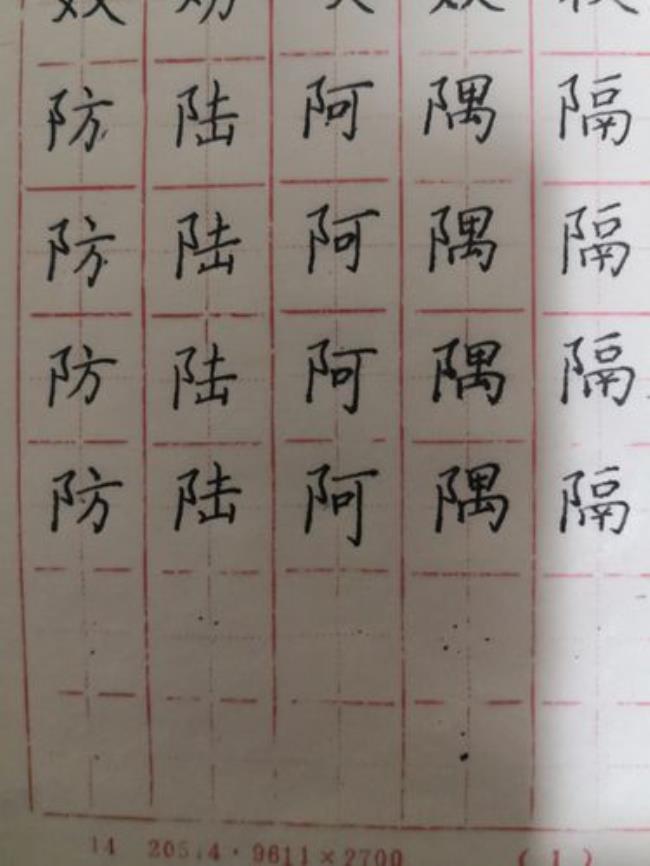 防 陆 阿 隅 隔
防 陆 阿 隅 隔
防 陆 阿 隅 隔
防 陆 阿 隅 隔
14 205.4·9611×2700 (1)